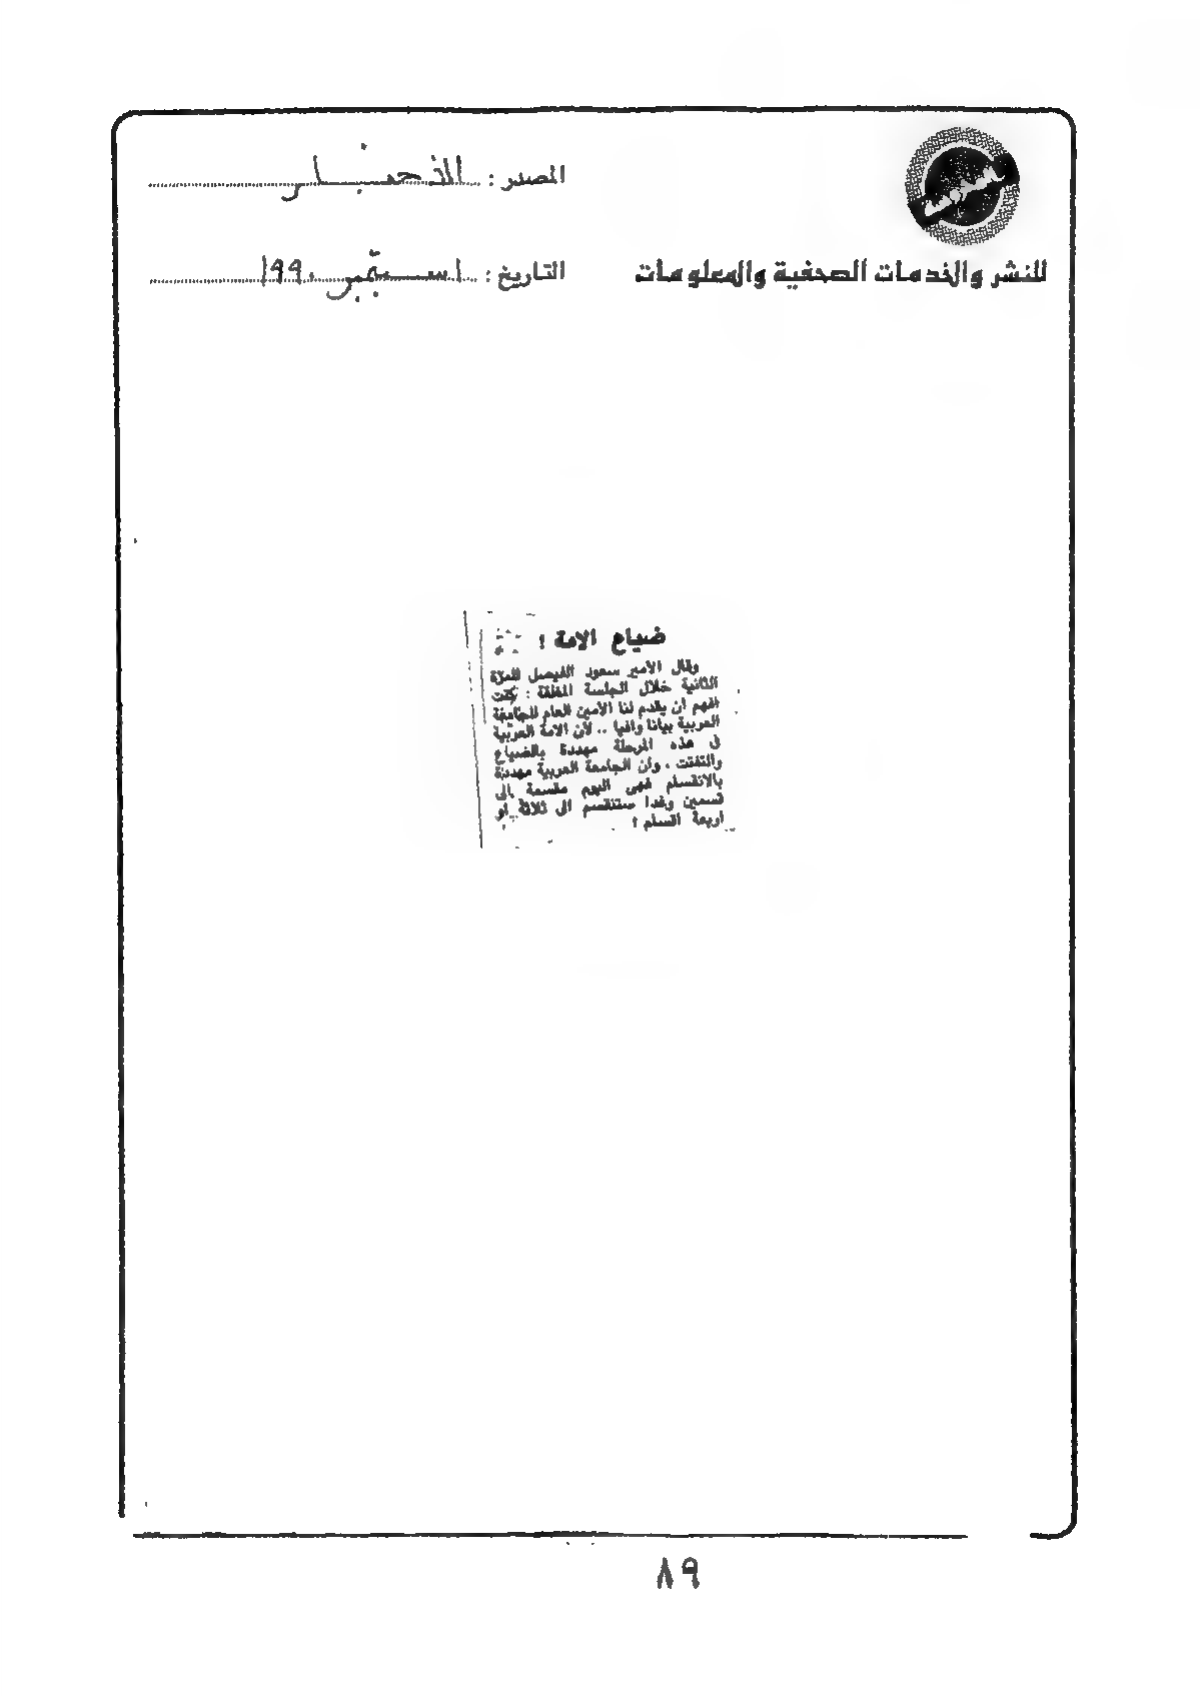 المصدر : الأخبار
للنشر والخدمات الصحفية والمعلومات
التاريخ : ١ سبتمبر ١٩٩٠
ضياع الامة !
وقال الأمير سعود الفيصل للمرة
الثانية خلال الجلسة المغلقة : كنت
افهم ان يقدم لنا الأمين العام للجامعة
العربية بيانا وافيا .. لأن الامة العربية
في هذه المرحلة مهددة بالضياع
والتفتت ، وان الجامعة العربية مهددة
بالانقسام فهى اليوم مقسمة الى
قسمين وغدا ستنقسم الى ثلاثة او
اربعة اقسام !
٨٩